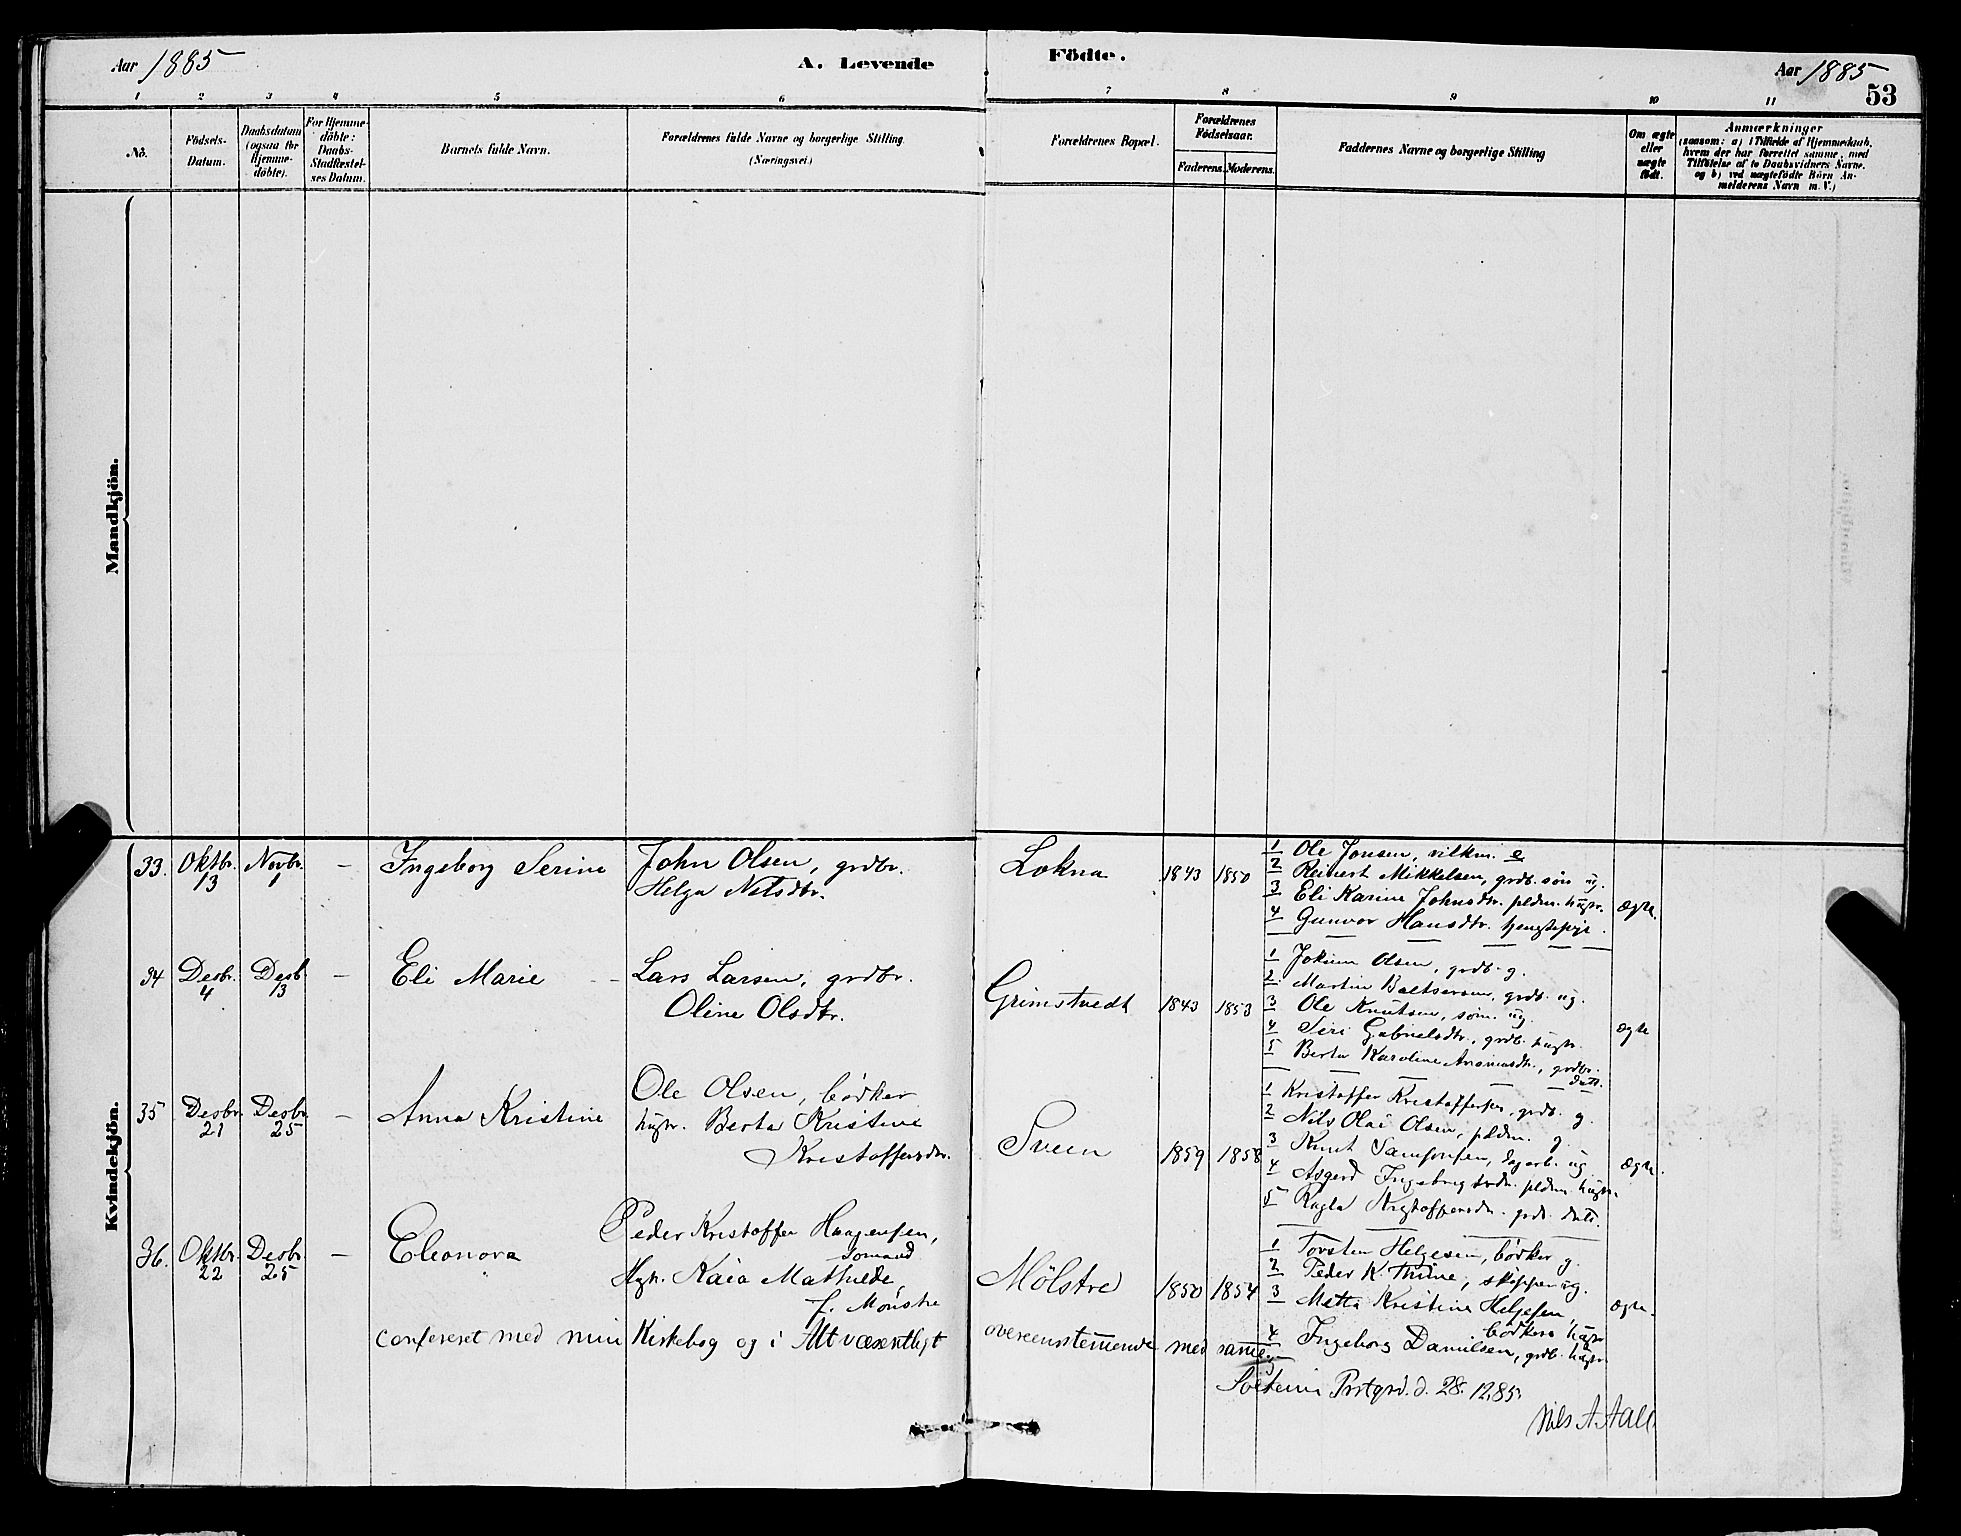 Aar 1885
A. Levende
Födte.
Aar 1885
53
1 2 3 4 5 6 7 8 9 10 11
No.
Födsels-
Datum.
Daabsdatum
(ogsaa for
Hjemme-
döbte).
For Hjemme-
döbte:
Daabs-
Stadfæstel-
ses Datum.
Barnets fulde Navn.
Forældrenes fulde Navne og borgerlige Stilling
(Næringsvei.)
Forældrenes Bopæl.
Forældrenes
Födselsaar.
Faderens. Moderens.
Faddernes Navne og borgerlige Stilling
Om ægte
eller
uægte
födt.
Anmærkninger
(saasom: a) i Tilfælde af Hjemmedaab,
hvem der har forrettet samme, med
Tilföielse af to Daabsvidners Navne.
og b) ved uægtefödte Börn An-
melderens Navn m. V.)
Mandkjön.
Kvindekjön.
33. Oktbr. 13 Novbr. 1 – Ingeborg Serine
John Olsen, grdbr.
Helga Nilsdtr.
Lokna 1843 1850
1 Ole Jonsen, vilkm. e
2 Reinert Mikkelsen, grdb. sön ug.
3 Eli Karine Johnsdtr. pldm. hustr.
4 Gunvor Hansdtr.
ægte.
34 Desbr. 4 Desb 13 – Eli Marie
Lars Larsen, grdbr.
Oline Olsdtr.
Grimstvedt 1843 1853
1 Jokum Olsen, grdb. g.
2 Martin Baltsersen, grdb. ug.
3 Ole Knutsen, söm. ug.
4 Siri Gabrielsdtr., grdb. hustr.
5 Berta Karoline, grdbr.
datt.
ægte
35 Desbr. 21 Desbr. 25 – Anna Kristine
Ole Olsen, bödker
hustr. Berta Kristine
Kristoffersdtr.
Sveen 1859 1858
1 Kristoffer Kristoffersen, grdb. g.
2 Nils Olai Olsen, pldm. g.
3 Knut Samsonsen, dagarb. ug
4 Asgerd pldm. hustr.
5 Kristoffersdtr. grdb. datt.
ægte.
36. Oktbr. 22 Desbr. 25 – Eleonora
Peder Kristoffer Haagensen,
Sömand
Hstr. Kaia Mathilde,
f. Mönstre
Mölstre 1850 1854
1 Torsten Helgesen, bödker g.
2 Peder K. Thime, skipper ug.
3 Metta Kristine Helgesen
bödkers hustr
4 Ingeborg Danielsen, grdb. hustr
ægte.
confereret med min Kirkebog og i Alt væsentligt overeensstemmende med samme
Prstgrd. d. 28. 12.85.
Nils A. Aall